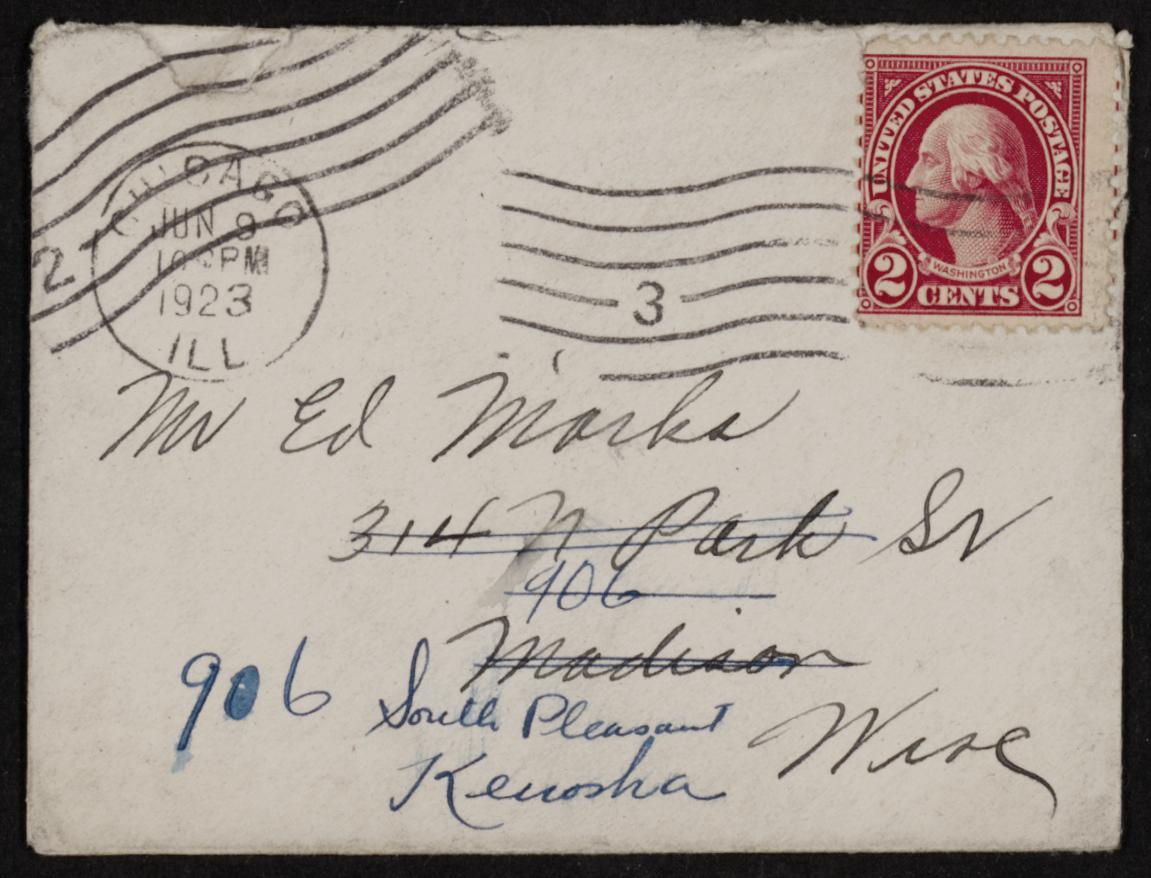 CHICAGO
JUN 9
PM
1923
ILL
2
3
UNITED STATES POSTAGE
WASHINGTON
2 CENTS 2
Mr Ed Marks
314 N Park St
906
Madison
906 South Pleasant
Kenosha
Wisc